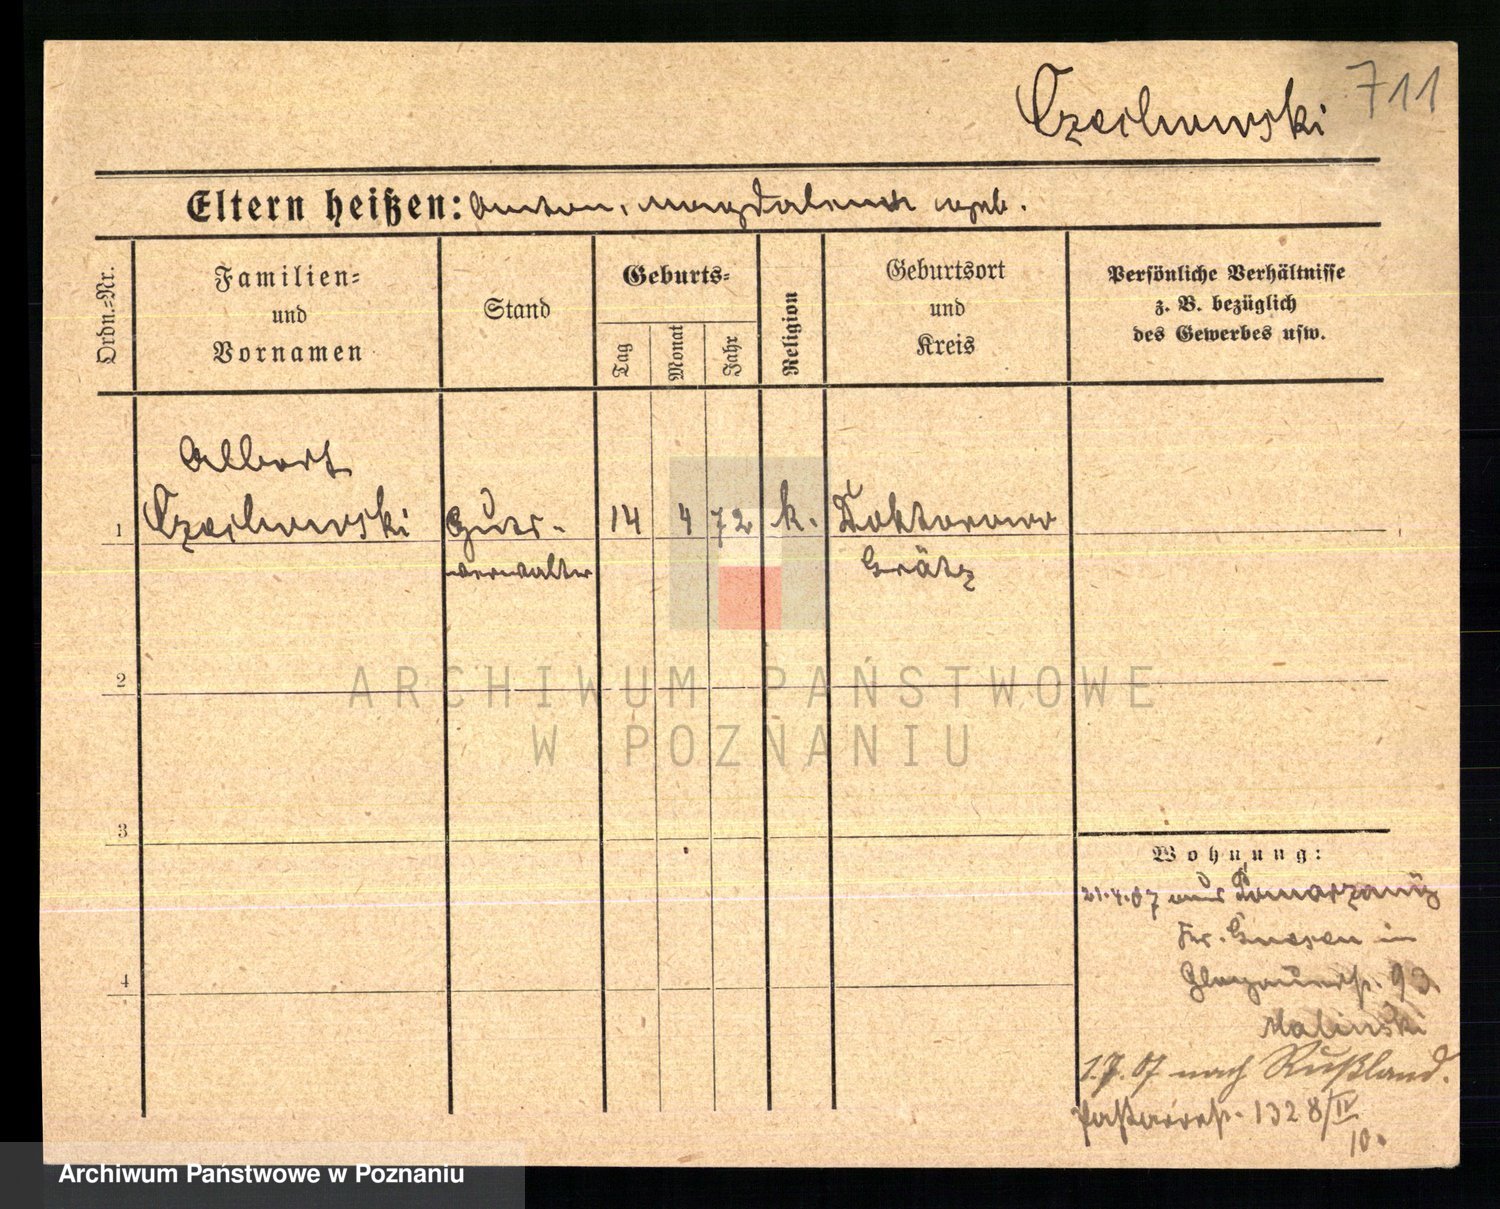 Czechowski 711
Eltern heißen: Anton, Magdalena geb.
Ordn.-Nr.
Familien-
und
Vornamen
Stand
Geburts-
Tag
Monat
Jahr
Religion
Geburtsort
und
Kreis
Persönliche Verhältnisse
z. B. bezüglich
des Gewerbes usw.
Albert
1 Czechowski Guts- 14 4 72 k. Doktorowo
verwalter Grätz
2
ARCHIWUM PAŃSTWOWE
W POZNANIU
3
Wohnung:
21.4.07 aus
Kr. Gnesen in
Glogauerstr. 93.
Malinski
1.7.07 nach Rußland.
1328/IV
10.
4
Archiwum Państwowe w Poznaniu